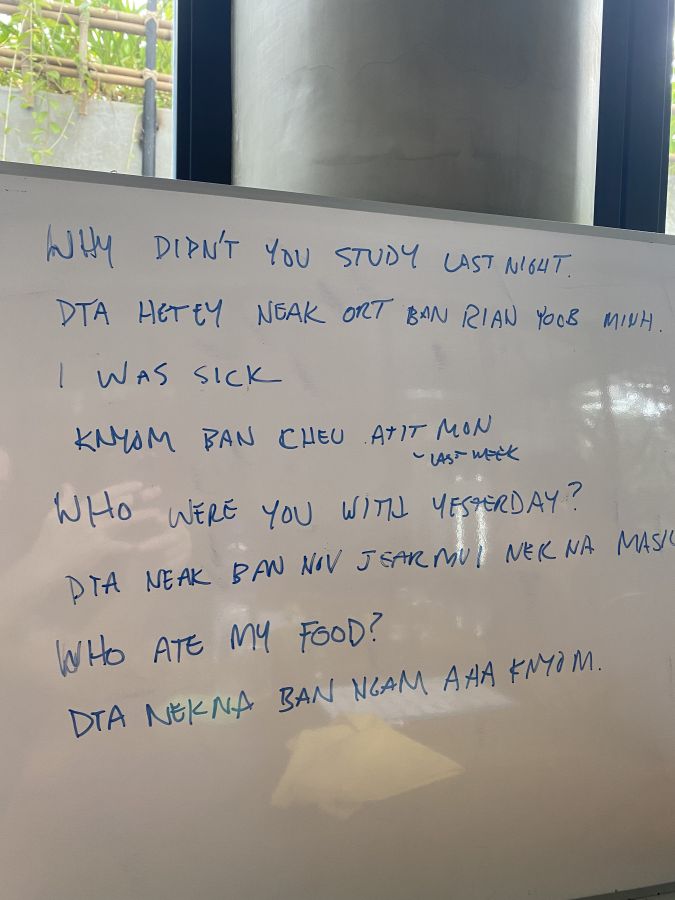 WHY DIDN'T YOU STUDY LAST NIGHT.
DTA HETEY NEAK ORT BAN RIAN YOOB MINH.
I WAS SICK
KNYOM BAN CHEU ATIT MON
LAST WEEK
WHO WERE YOU WITH YESTERDAY?
DTA NEAK BAN NOV JEARMUI NEK NA
WHO ATE MY FOOD?
DTA NEKNA BAN NGAM AHA KNYOM.